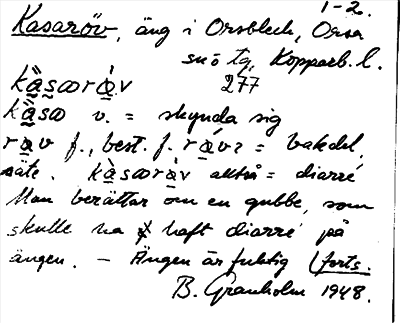 1-2.
Kasaröv, äng i Orsbleck, Orsa
sn ö tg, Kopparb. l.
kàsaràv 277
kàsa v. = skynda sig
rav f., best. f. ráve = bakdel,
säte. kàsaràv alltså = diarré
Man berättar om en gubbe, som
skulle ha haft diarré på
ängen. — Ängen är fuktig (forts.
B. Granholm 1948.